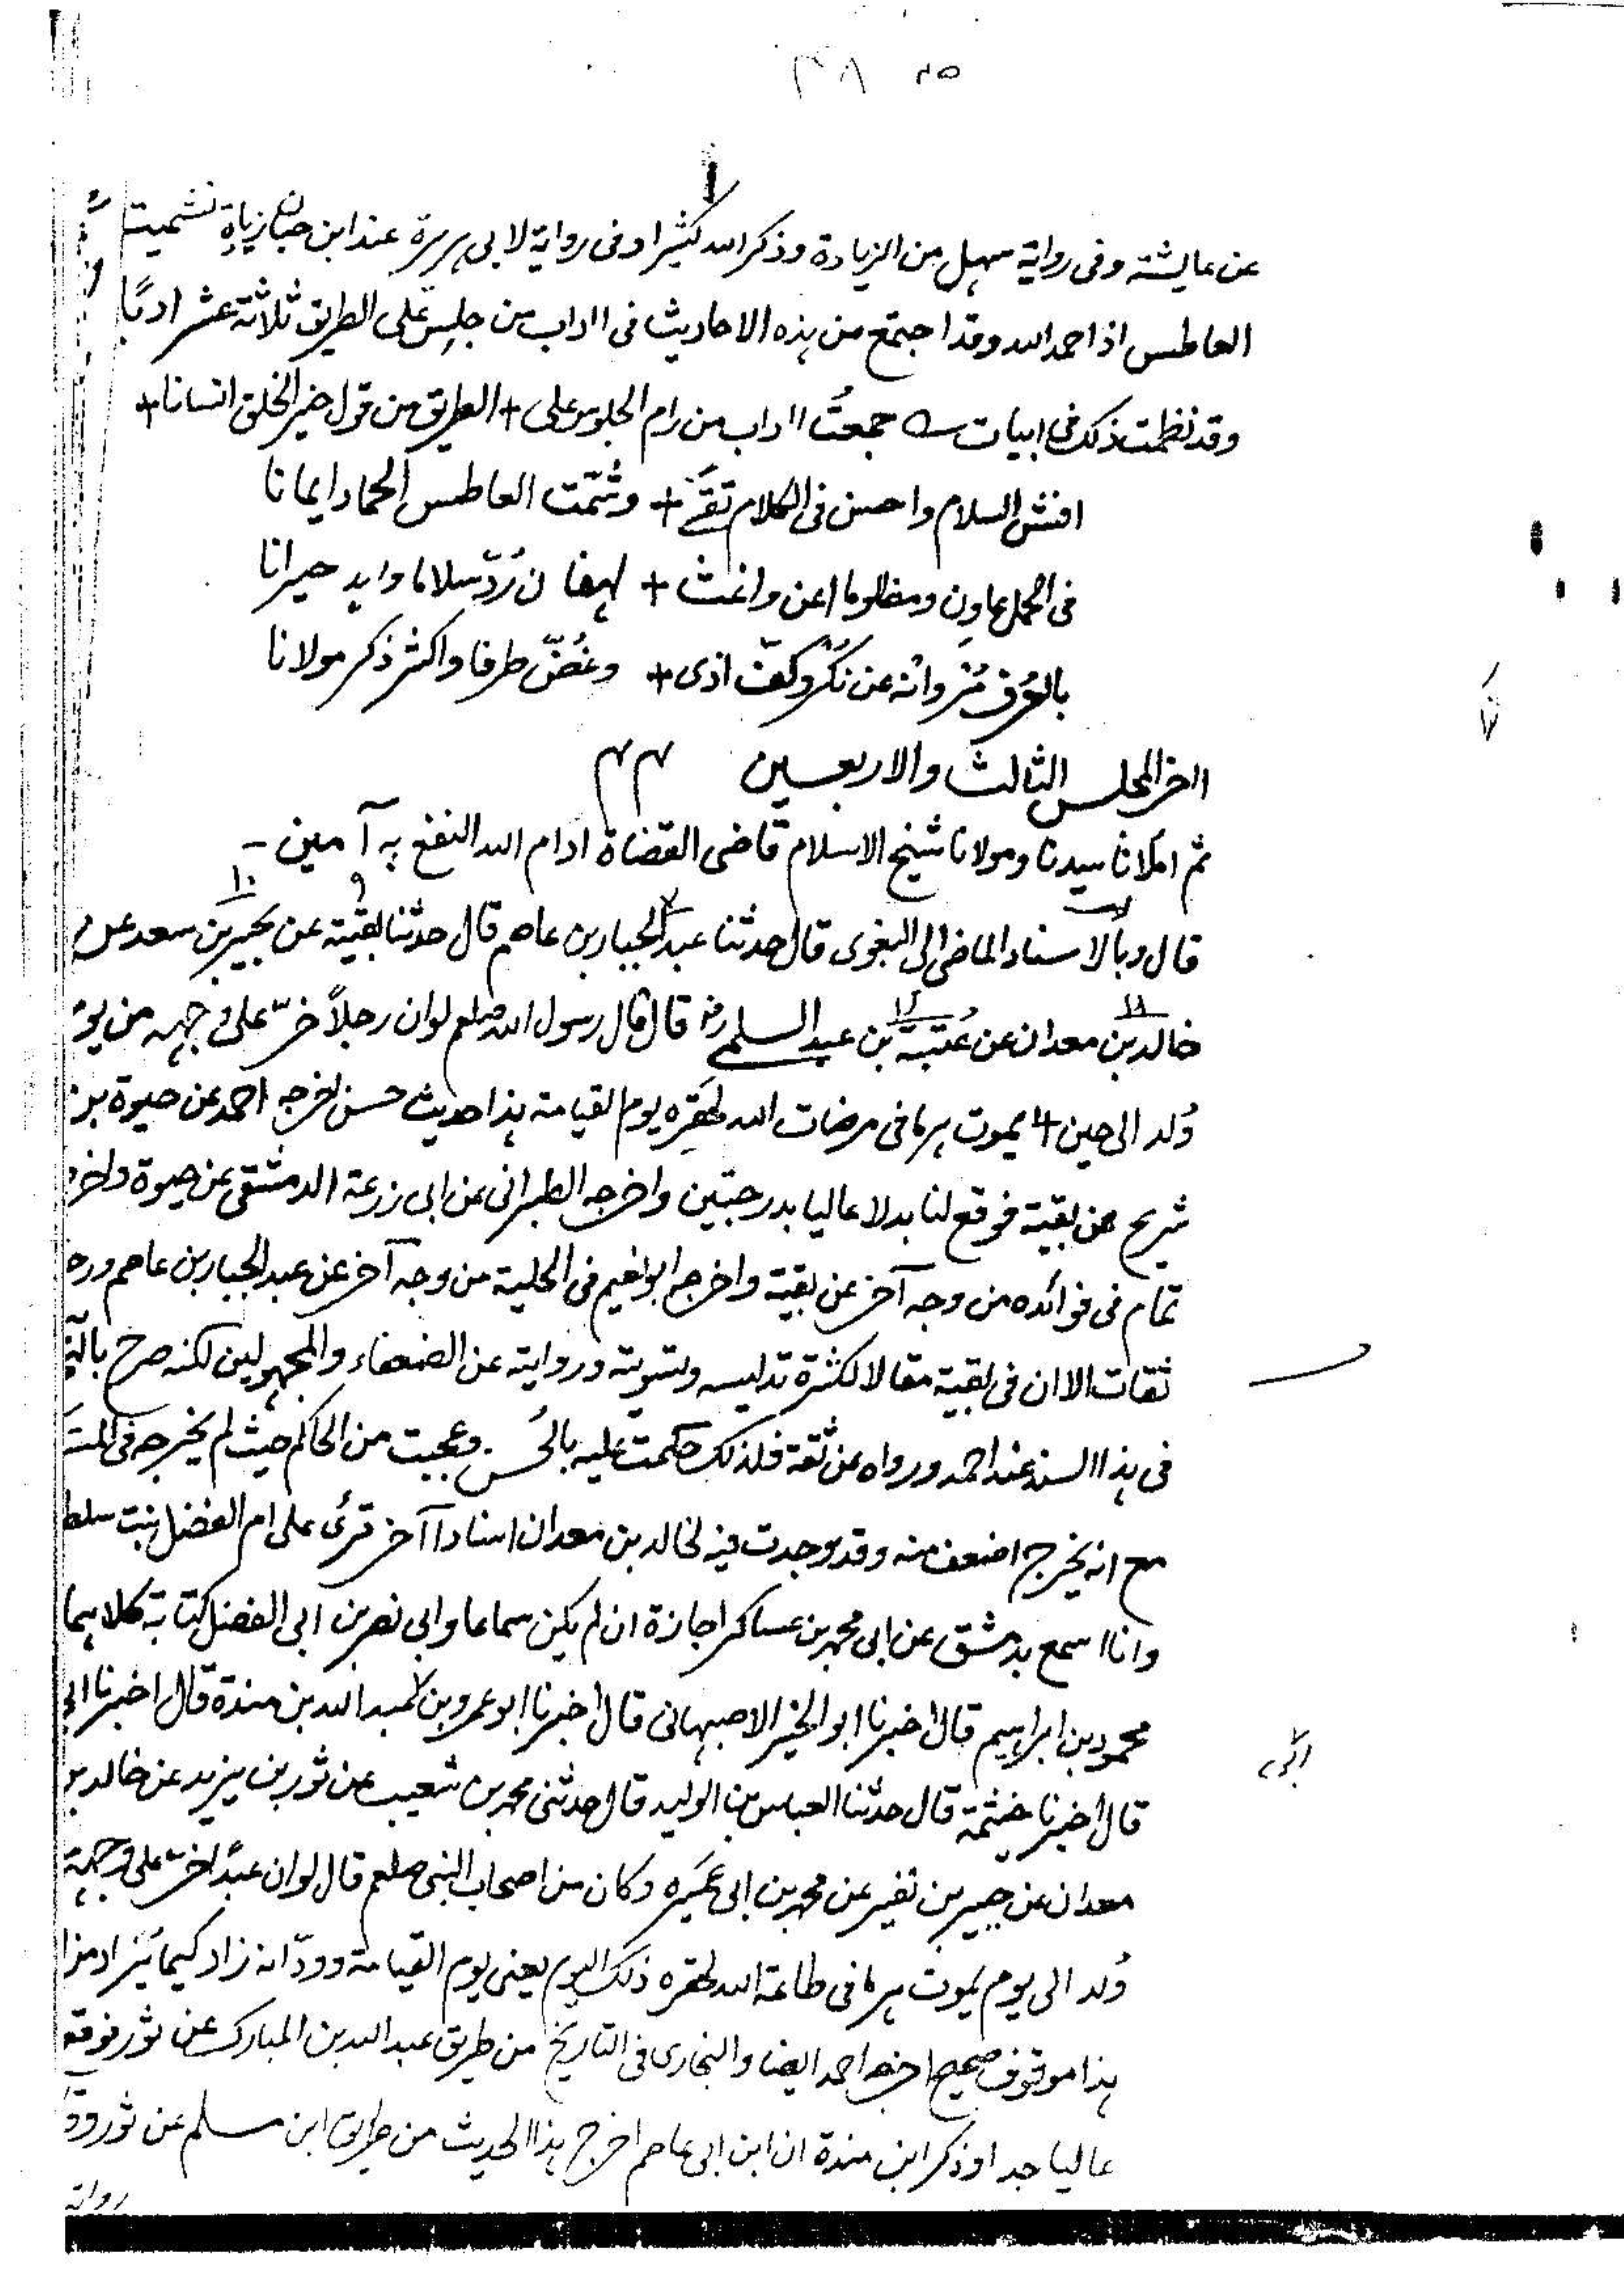 عن عايشة وفى رواية سهيل من الزيادة وذكر الله كثيرا وفى رواية لابى هريرة عند ابن حبان زياة تشميت
العاطس اذا حمد الله وقد اجتمع من هذه الاحاديث فى ااداب من جلس على الطريق ثلاثة عشر ادبًا
وقد نظمت ذلك فى ابيات جمعتُ ااداب من رام الجلوس على + الطريق من قول خير الخلق انسانا +
افش السلام واحسن فى الكلام تقى + وشمّت العاطس الحماد ايمانا
فى الحمل عاون ومظلوما اعن واغث + لهفان رُدّ سلاما واهد حيرانا
بالعُرف مُر وانه عن نكر وكفّ اذى + وغُضّ طرفا واكثر ذكر مولانا
ااخر المجلس الثالث والاربعين ۴۳
ثم املانا سيدنا ومولانا شيخ الاسلام قاضى القضاة ادام الله النفع به آمين -
قال وبالاسناد الماضى الى البغوى قال حدثنا عبد الجبار بن عاصم قال حدثنا بقية عن بحير بن سعد عن
خالد بن معدان عن عُتبة بن عبد السلمي رض قال قال رسول الله صلعم لو ان رجلاً خرّ على وجهه من يو
وُلد الى حين يموت هرما فى مرضات الله لحقره يوم القيامة هذا حديث حسن اخرجه احمد عن حيوة بن
شريح عن بقية فوقع لنا بدلا عاليا بدرجتين واخرجه الطبرانى عن ابى زرعة الدمشقى عن حيوة واخر
تمام فى فوائده من وجه آخر عن بقية واخرجه ابو نعيم فى الحلية من وجه آخر عن عبد الجبار بن عاصم ورجـ
ثقات الا ان فى بقية مقالا لكثرة تدليسه وتسويته وروايته عن الضعفاء والمجهولين لكنه صرح بالتـ
فى هذا السند عند احمد ورواه عن ثقة فلذلك حكمت عليه بالحُسن وعجبت من الحاكم حيث لم يخرجه فى المستـ
مع انه يخرج اضعف منه وقد وجدت فيه لخالد بن معدان اسنادا آخر قرئ على ام الفضل بنت سلطـ
وانا اسمع بدمشق عن ابى محمد بن عساكر اجازة ان لم يكن سماعا وابى نصر بن ابى الفضل كتابة كلاهما
محمود بن ابراهيم قال اخبرنا ابو الخير الاصبهانى قال اخبرنا ابو عمرو بن عبد الله بن مندة قال اخبرنا ابى
قال اخبرنا خيثمة قال حدثنا العباس بن الوليد قال حدثنى محمد بن شعيب عن ثور بن يزيد عن خالد بن
معدان عن جبير بن نفير عن محمد بن ابى عميره وكان من اصحاب النبى صلعم قال لو ان عبدًا خرّ على وجهه
وُلد الى يوم يموت هرما فى طاعة الله لحقره ذلك اليوم يعنى يوم القيامة وودّ انه زاد كيما يزاد من ا
هذا موقوف صحيح اخرجه احمد ايضا والبخارى فى التاريخ من طريق عبد الله بن المبارك عن ثور فوقع
عاليا جدا وذكر ابن مندة ان ابن ابى عاصم اخرج هذا الحديث من طريق ابن مسلم عن ثور وو
رواته